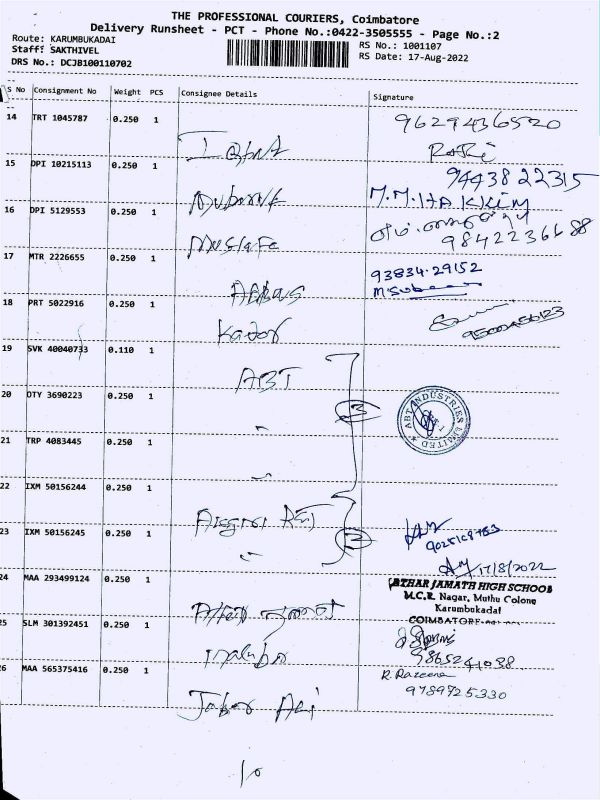 THE PROFESSIONAL COURIERS, Coimbatore
Delivery Runsheet - PCT - Phone No.:0422-3505555 - Page No.:2
Route: KARUMBUKADAI
Staff: SAKTHIVEL
DRS No.: DCJB100110702
RS No.: 1001107
RS Date: 17-Aug-2022
S No Consignment No Weight PCS Consignee Details Signature
14 TRT 1045787 0.250 1 9629436520
15 DPI 10215113 0.250 1 9443822315
M.M.HAKKIM
16 DPI 5129553 0.250 1 Mustafa
9842236688
17 MTR 2226655 0.250 1 Abbas 93834-29152
18 PRT 5022916 0.250 1 Kader
19 SVK 40040733 0.110 1 ABT
20 OTY 3690223 0.250 1 3 ABT INDUSTRIES LIMITED
21 TRP 4083445 0.250 1
22 IXM 50156244 0.250 1
23 IXM 50156245 0.250 1 2
17/8/2022
24 MAA 293499124 0.250 1 ATHAR JAMATH HIGH SCHOOL
M.C.R. Nagar, Muthu Colony
Karumbukadai
COIMBATORE
25 SLM 301392451 0.250 1 9865241038
26 MAA 565375416 0.250 1 R. Razeena
9789725330